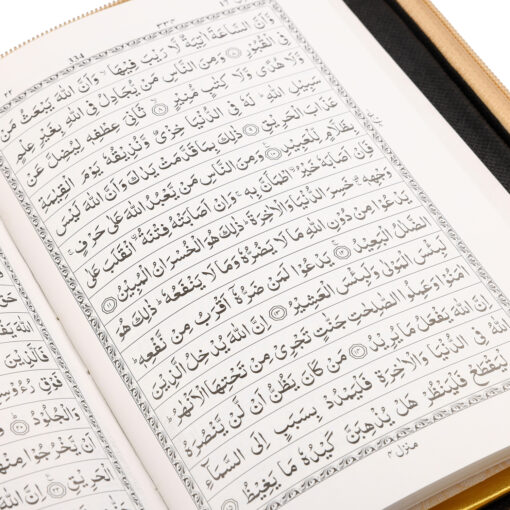 ٣٣٤
وَّاَنَّ السَّاعَةَ اٰتِيَةٌ لَّا رَيْبَ فِيْهَا ۙ وَاَنَّ اللّٰهَ يَبْعَثُ مَنْ
فِي الْقُبُوْرِ ۝٧ وَمِنَ النَّاسِ مَنْ يُّجَادِلُ فِي اللّٰهِ بِغَيْرِ عِلْمٍ
وَّلَا هُدًى وَّلَا كِتٰبٍ مُّنِيْرٍ ۝٨ ثَانِيَ عِطْفِهٖ لِيُضِلَّ عَنْ
سَبِيْلِ اللّٰهِ ؕ لَهٗ فِي الدُّنْيَا خِزْيٌ وَّنُذِيْقُهٗ يَوْمَ الْقِيٰمَةِ
عَذَابَ الْحَرِيْقِ ۝٩ ذٰلِكَ بِمَا قَدَّمَتْ يَدٰكَ وَاَنَّ اللّٰهَ لَيْسَ
بِظَلَّامٍ لِّلْعَبِيْدِ ۝١٠ وَمِنَ النَّاسِ مَنْ يَّعْبُدُ اللّٰهَ عَلٰى حَرْفٍ ۚ
فَاِنْ اَصَابَهٗ خَيْرُ ۨاطْمَاَنَّ بِهٖ ۚ وَاِنْ اَصَابَتْهُ فِتْنَةُ ۨانْقَلَبَ عَلٰى
وَجْهِهٖ ۚ خَسِرَ الدُّنْيَا وَالْاٰخِرَةَ ؕ ذٰلِكَ هُوَ الْخُسْرَانُ الْمُبِيْنُ ۝١١
يَدْعُوْا مِنْ دُوْنِ اللّٰهِ مَا لَا يَضُرُّهٗ وَمَا لَا يَنْفَعُهٗ ؕ ذٰلِكَ هُوَ
الضَّلٰلُ الْبَعِيْدُ ۝١٢ يَدْعُوْا لَمَنْ ضَرُّهٗ اَقْرَبُ مِنْ نَّفْعِهٖ ؕ
لَبِئْسَ الْمَوْلٰى وَلَبِئْسَ الْعَشِيْرُ ۝١٣ اِنَّ اللّٰهَ يُدْخِلُ الَّذِيْنَ
اٰمَنُوْا وَعَمِلُوا الصّٰلِحٰتِ جَنّٰتٍ تَجْرِيْ مِنْ تَحْتِهَا الْاَنْهٰرُ ؕ
اِنَّ اللّٰهَ يَفْعَلُ مَا يُرِيْدُ ۝١٤ مَنْ كَانَ يَظُنُّ اَنْ لَّنْ يَّنْصُرَهُ
اللّٰهُ فِي الدُّنْيَا وَالْاٰخِرَةِ فَلْيَمْدُدْ بِسَبَبٍ اِلَى السَّمَآءِ
ثُمَّ لْيَقْطَعْ فَلْيَنْظُرْ هَلْ يُذْهِبَنَّ كَيْدُهٗ مَا يَغِيْظُ ۝١٥
منزل ٤
فَالَّذِيْنَ
فَوْقِ رُءُوْسِ
وَالْجُلُوْدُ
اَنْ يَّخْرُجُوْا مِنْهَا
الْحَرِيْقِ ۝٢٢ اِنَّ